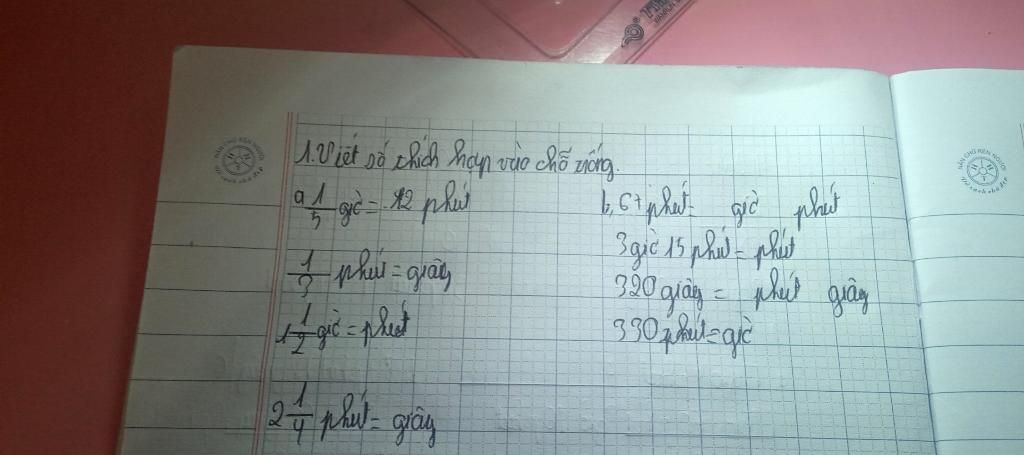 1. Viết số thích hợp vào chỗ trống.
a, 1/5 giờ = 12 phút
1/3 phút = giây
1 1/2 giờ = phút
2 1/4 phút = giây
b, 67 phút = giờ phút
3 giờ 15 phút = phút
320 giây = phút giây
330 phút = giờ